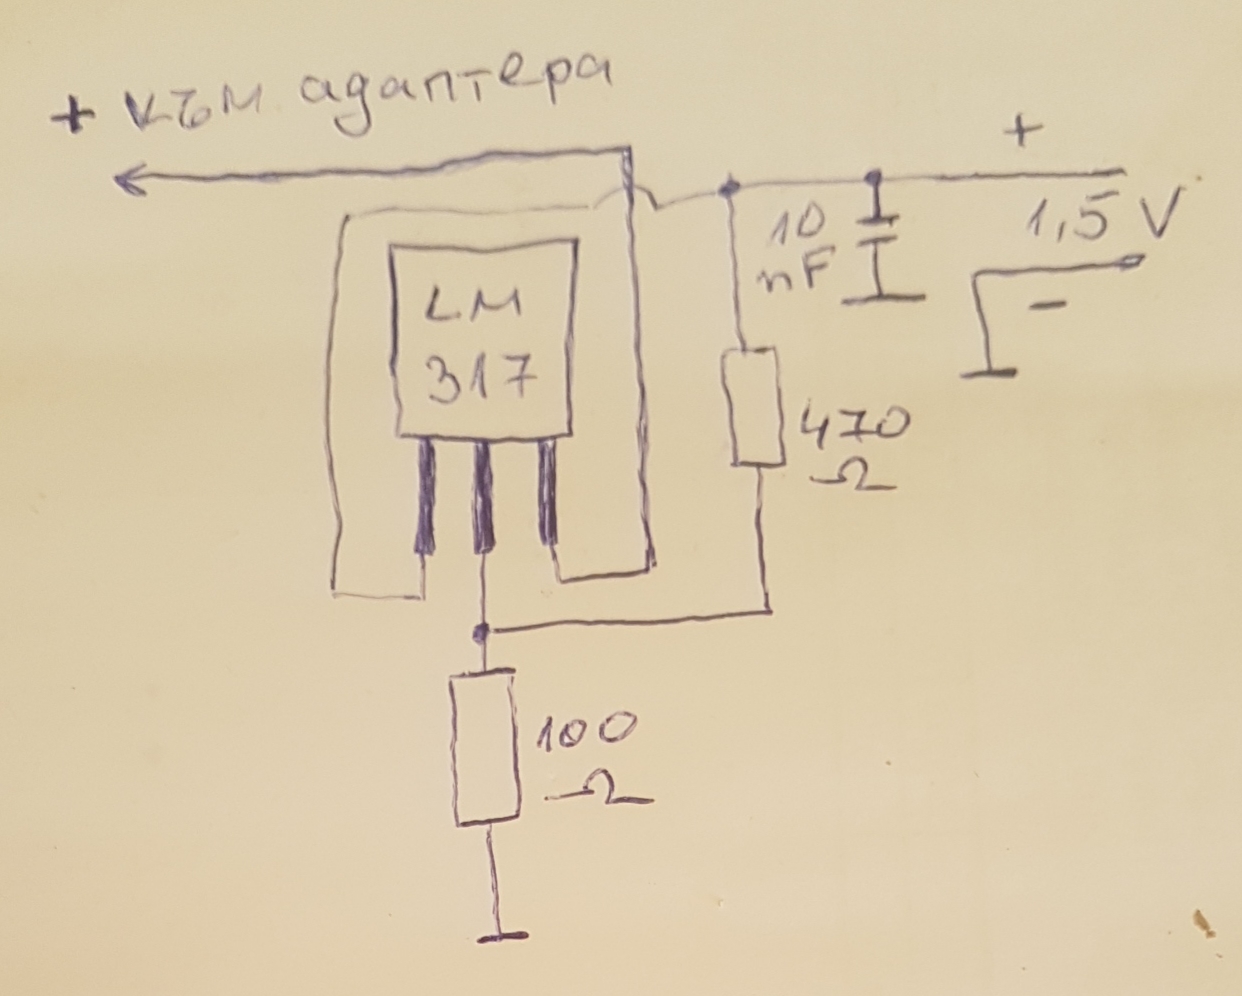 + към адаптера
+
1,5 V
-
10
nF
LM
317
470
Ω
100
Ω